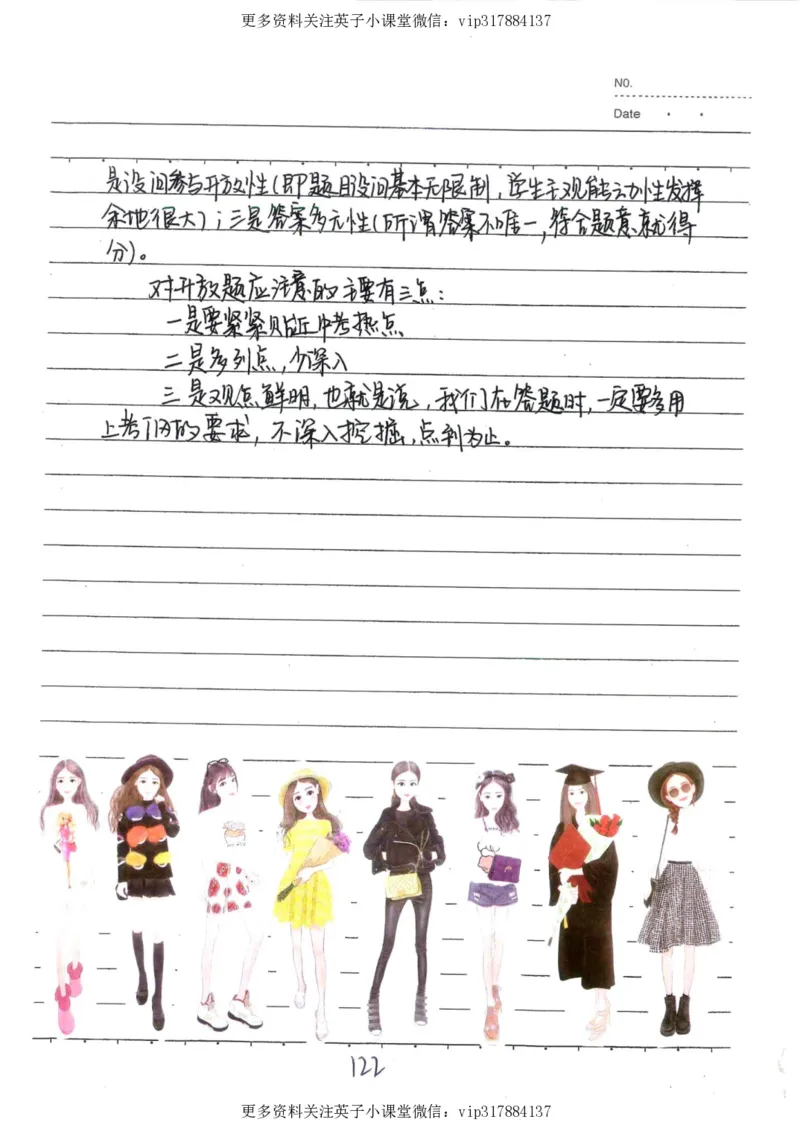 更多资料关注英子小课堂微信：vip317884137
NO.
Date
是设问参与开放性(即题目设问基本无限制,学生主观能动性发挥
余地很大);三是答案多元性(所谓答案不唯一,符合题意就得
分)。
对开放题应注意的主要有三点:
一是要紧紧贴近中考热点
二是多列点,少深入
三是观点鲜明,也就是说,我们在答题时,一定要多用
上考门内的要求,不深入挖掘,点到为止。
122
更多资料关注英子小课堂微信：vip317884137